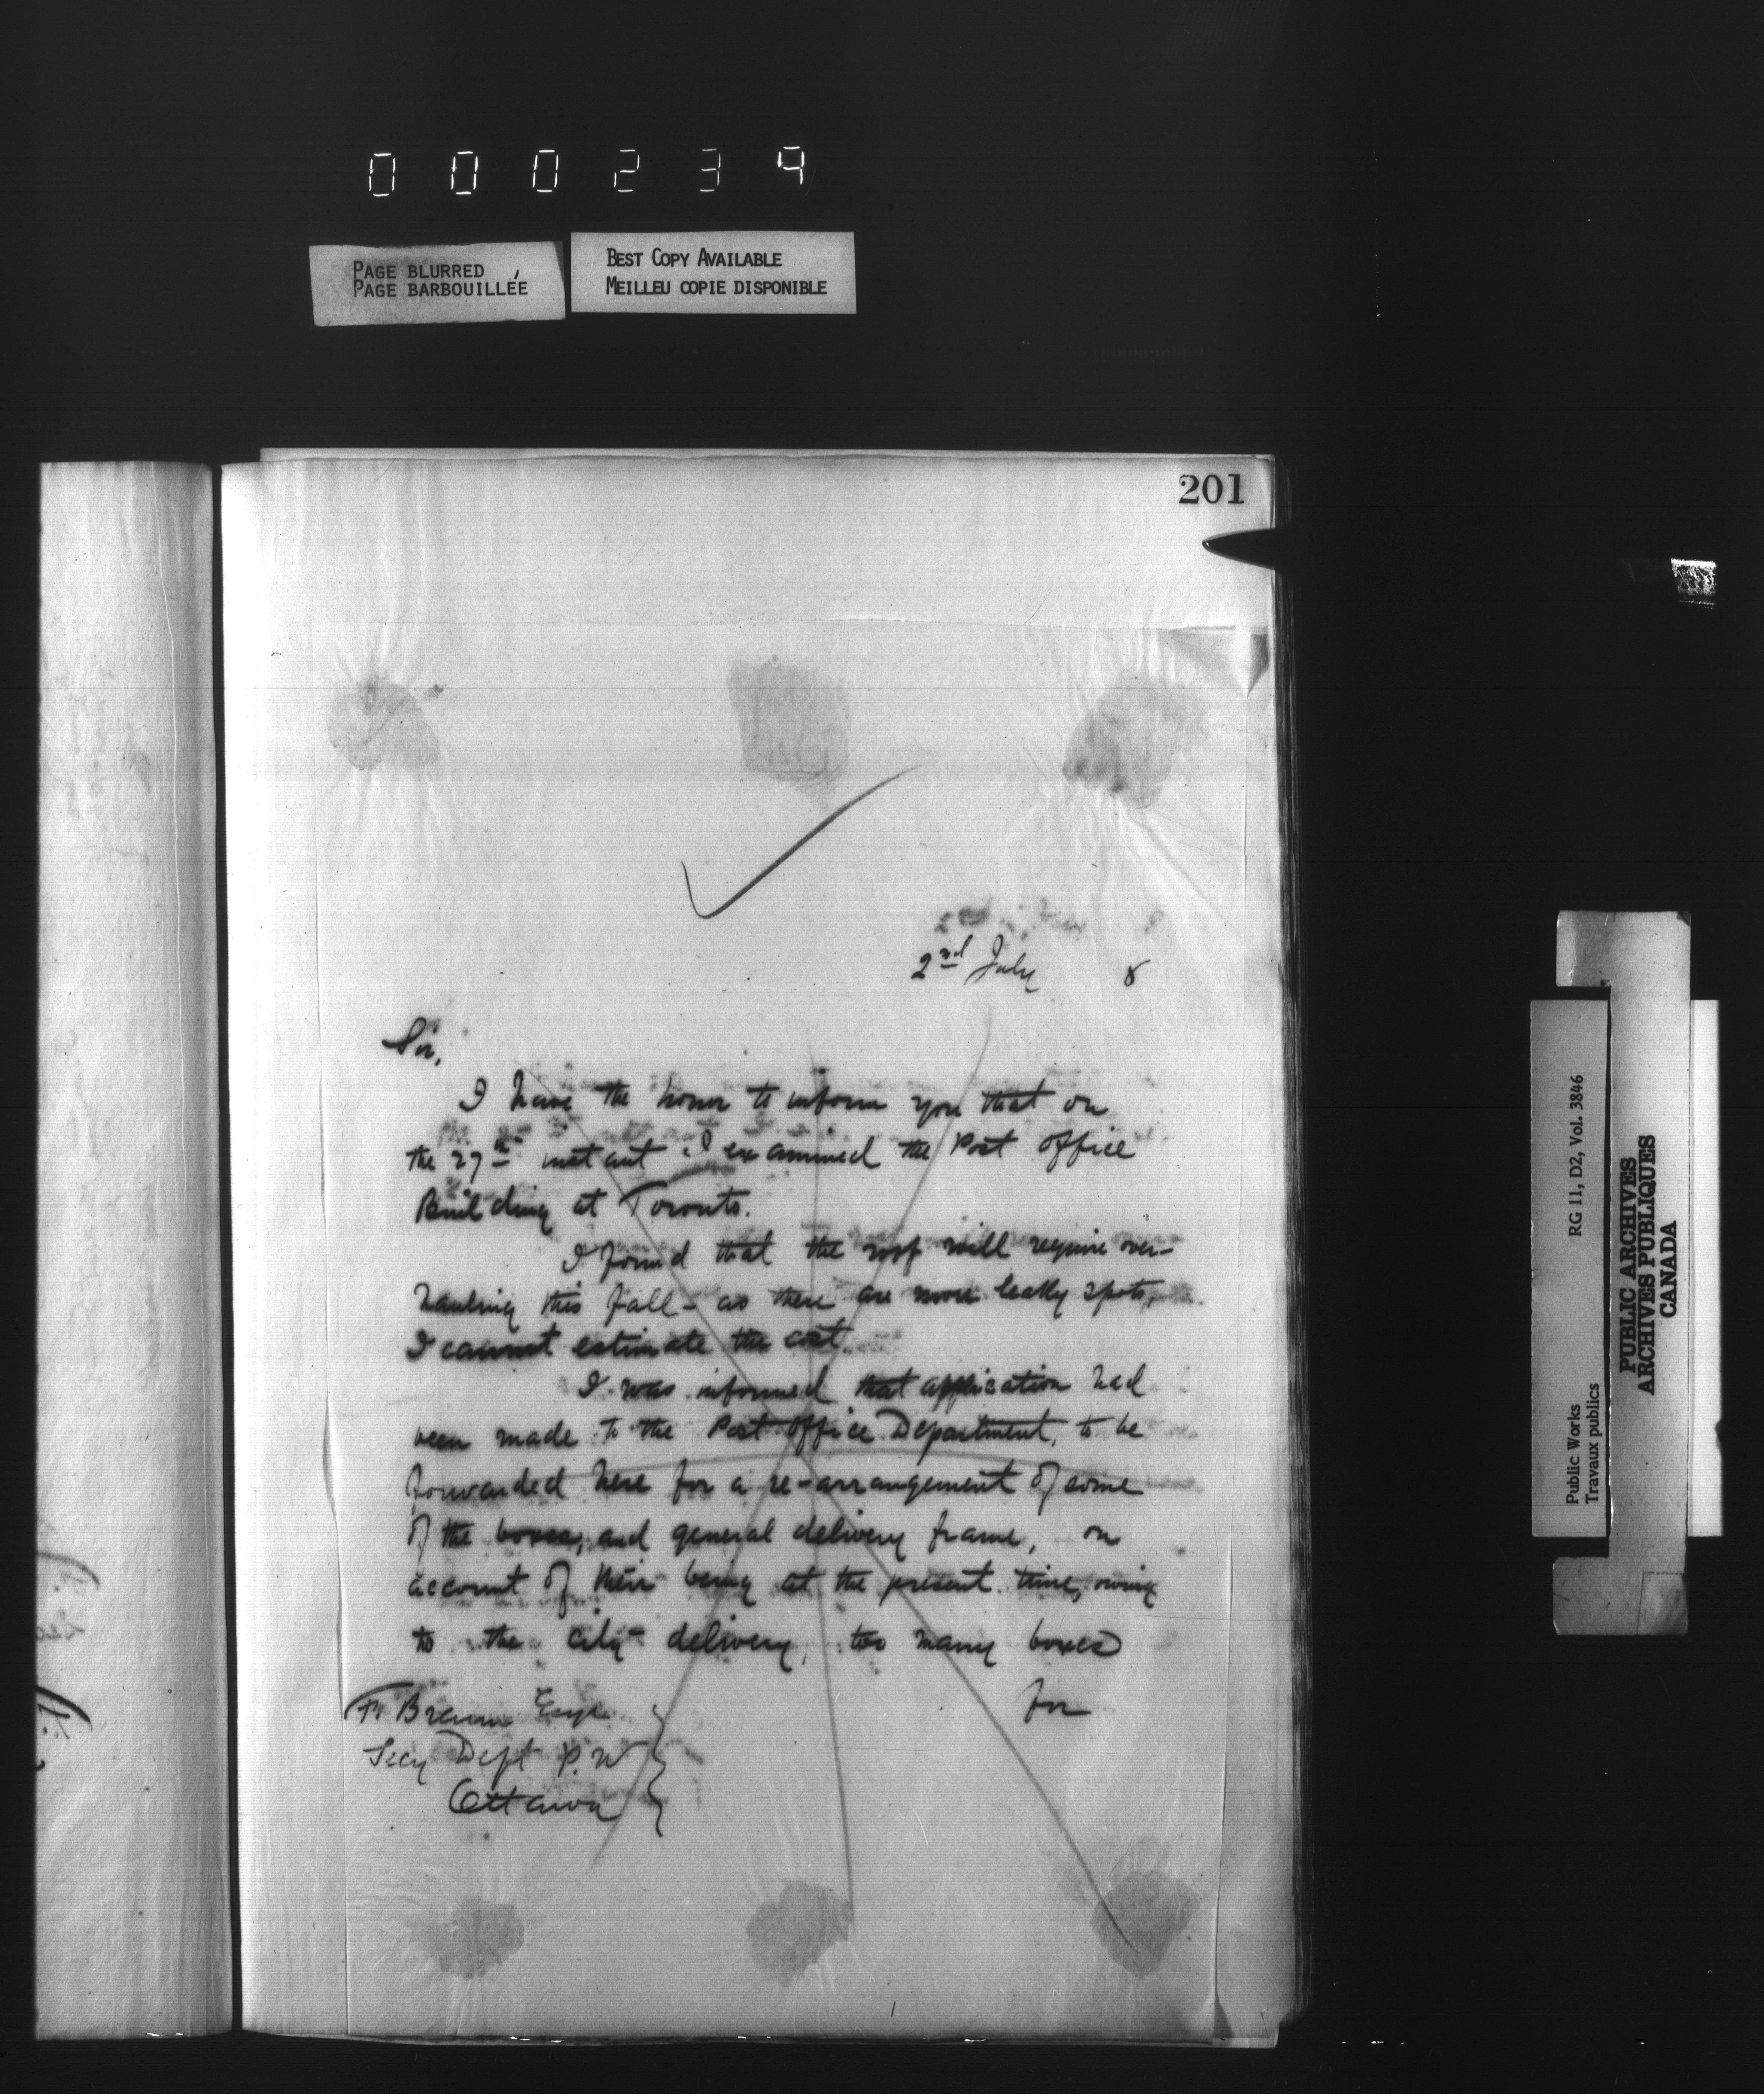 000234
PAGE BLURRED
PAGE BARBOUILLÉE
BEST COPY AVAILABLE
MEILLEU COPIE DISPONIBLE
201
2nd July 8
Sir,
I have the honor to inform you that on
the 27th instant I examined the Post Office
Building at Toronto.
I found that the roof will require over-
hauling this fall - as there are more leaky spots,
I cannot estimate the cost.
I was informed that application had
been made to the Post Office Department, to be
forwarded here for a re-arrangement of some
of the boxes, and general delivery frame, on
account of their being at the present time, owing
to the city delivery, too many boxes
for
Esqr
Secy Dept P. W
Ottawa
Public Works RG 11, D2, Vol. 3846
Travaux publics
PUBLIC ARCHIVES
ARCHIVES PUBLIQUES
CANADA